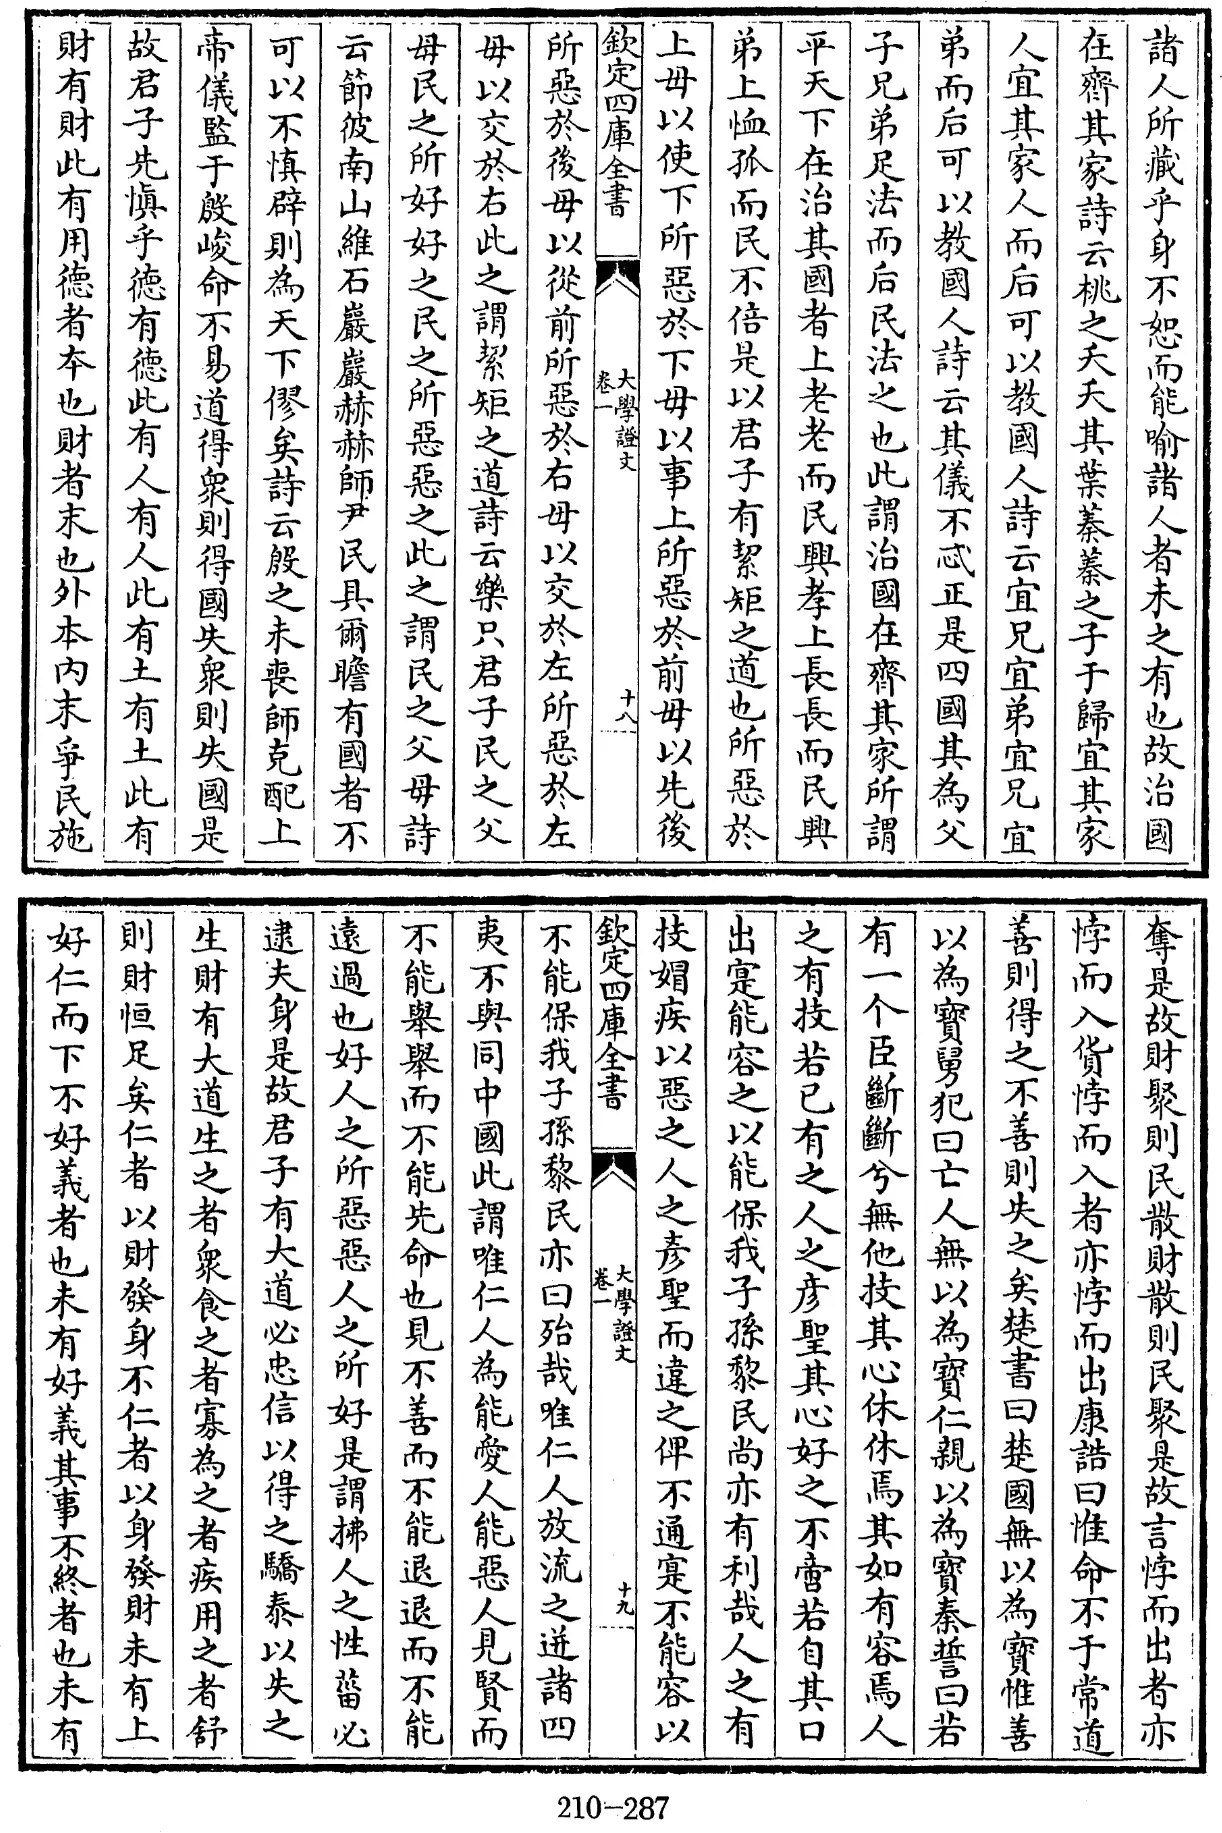 諸人所藏乎身不恕而能喻諸人者未之有也故治國
在齊其家詩云桃之夭夭其葉蓁蓁之子于歸宜其家
人宜其家人而后可以教國人詩云宜兄宜弟宜兄宜
弟而后可以教國人詩云其儀不忒正是四國其為父
子兄弟足法而后民法之也此謂治國在齊其家所謂
平天下在治其國者上老老而民興孝上長長而民興
弟上恤孤而民不倍是以君子有絜矩之道也所惡於
上毋以使下所惡於下毋以事上所惡於前毋以先後
欽定四庫全書
大學證文
卷一
十八
所惡於後毋以從前所惡於右毋以交於左所惡於左
毋以交於右此之謂絜矩之道詩云樂只君子民之父
母民之所好好之民之所惡惡之此之謂民之父母詩
云節彼南山維石巖巖赫赫師尹民具爾瞻有國者不
可以不慎辟則為天下僇矣詩云殷之未喪師克配上
帝儀監于殷峻命不易道得衆則得國失衆則失國是
故君子先慎乎德有德此有人有人此有土有土此有
財有財此有用德者本也財者末也外本内末爭民施
奪是故財聚則民散財散則民聚是故言悖而出者亦
悖而入貨悖而入者亦悖而出康誥曰惟命不于常道
善則得之不善則失之矣楚書曰楚國無以為寶惟善
以為寶舅犯曰亡人無以為寶仁親以為寶秦誓曰若
有一个臣斷斷兮無他技其心休休焉其如有容焉人
之有技若已有之人之彦聖其心好之不啻若自其口
出寔能容之以能保我子孫黎民尚亦有利哉人之有
技媢疾以惡之人之彦聖而違之俾不通寔不能容以
欽定四庫全書
大學證文
卷一
十九
不能保我子孫黎民亦曰殆哉唯仁人放流之迸諸四
夷不與同中國此謂唯仁人為能愛人能惡人見賢而
不能舉舉而不能先命也見不善而不能退退而不能
遠過也好人之所惡惡人之所好是謂拂人之性菑必
逮夫身是故君子有大道必忠信以得之驕泰以失之
生財有大道生之者衆食之者寡為之者疾用之者舒
則財恒足矣仁者以財發身不仁者以身發財未有上
好仁而下不好義者也未有好義其事不終者也未有
210-287